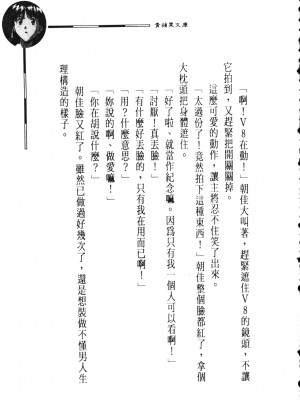 青蘋果文庫
「啊！V8在動！」朝佳大叫著，趕緊遮住V8的鏡頭，不讓
它拍到，又趕緊把開關關掉。
這麼可愛的動作，讓主將忍不住笑了出來。
「太過份了！竟然拍下這種東西！」朝佳整個臉都紅了，拿個
大枕頭把身體遮住。
「好了啦、就當作紀念嘛。因爲只有我一個人可以看啊！」
「討厭！真丟臉！」
「有什麼好丟臉的，只有我在用而已啊！」
「用？什麼意思？」
「妳說的啊、做愛嘛！」
「你在胡說什麼？」
朝佳臉又紅了。雖然已做過好幾次了，還是想裝做不懂男人生
理構造的樣子。